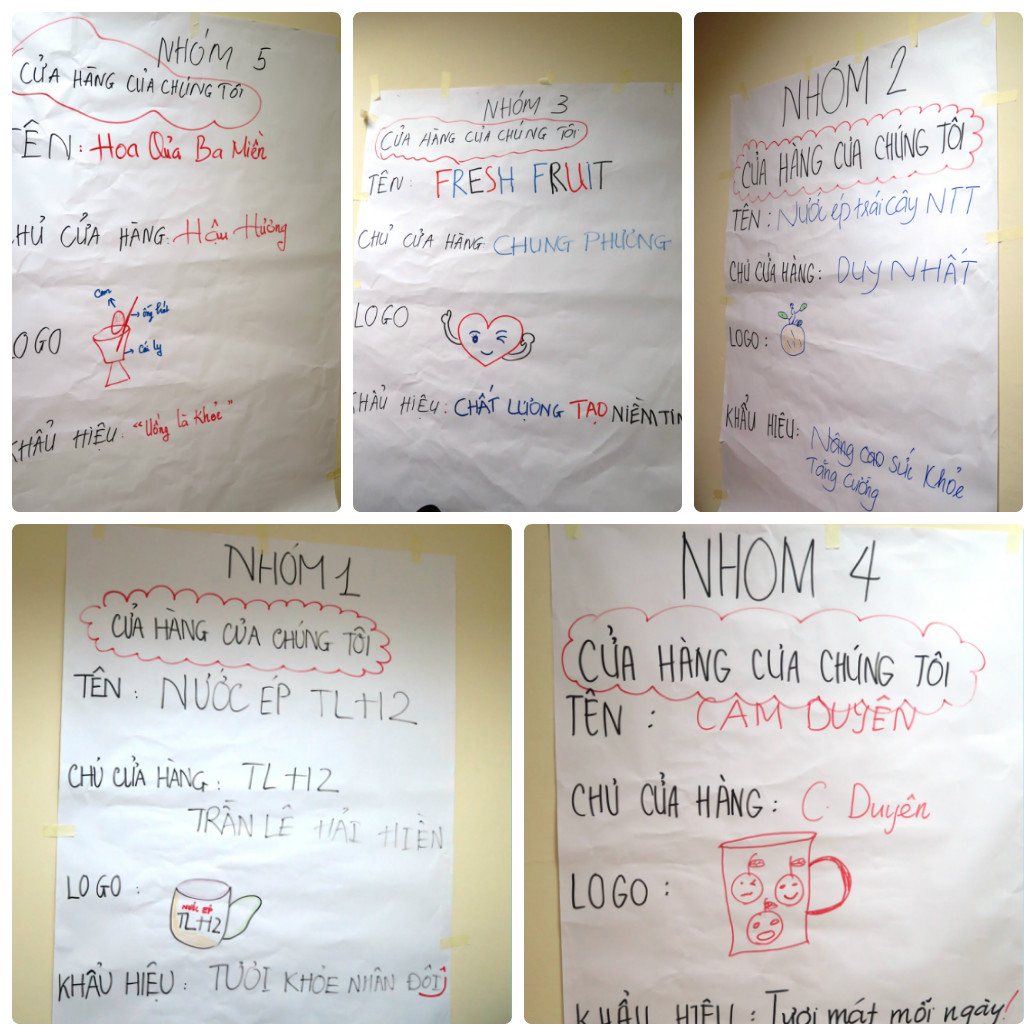 NHÓM 5
CỬA HÀNG CỦA CHÚNG TÔI
TÊN: Hoa Quả Ba Miền
HỦ CỬA HÀNG: Hậu Hường
LOGO
Cam
ống hút
Cái ly
KHẨU HIỆU: "Uống là Khỏe"
NHÓM 3
CỬA HÀNG CỦA CHÚNG TÔI
TÊN: FRESH FRUIT
CHỦ CỬA HÀNG: CHUNG PHƯƠNG
LOGO
KHẨU HIỆU: CHẤT LƯỢNG TẠO NIỀM TIN
NHÓM 2
CỬA HÀNG CỦA CHÚNG TÔI
TÊN : Nước ép trái cây NTT
CHỦ CỬA HÀNG: DUY NHẤT
LOGO :
KHẨU HIỆU: Nâng cao sức khỏe
Tăng cường
NHÓM 1
CỬA HÀNG CỦA CHÚNG TÔI
TÊN : NƯỚC ÉP TL+H2
CHỦ CỬA HÀNG: TL+H2
TRẦN LÊ HẢI HIỀN
LOGO :
NƯỚC ÉP
TL+H2
KHẨU HIỆU: TƯƠI KHỎE NHÂN ĐÔI
NHÓM 4
CỬA HÀNG CỦA CHÚNG TÔI
TÊN : CAM DUYÊN
CHỦ CỬA HÀNG: C. Duyên
LOGO :
KHẨU HIỆU: Tươi mát mỗi ngày!